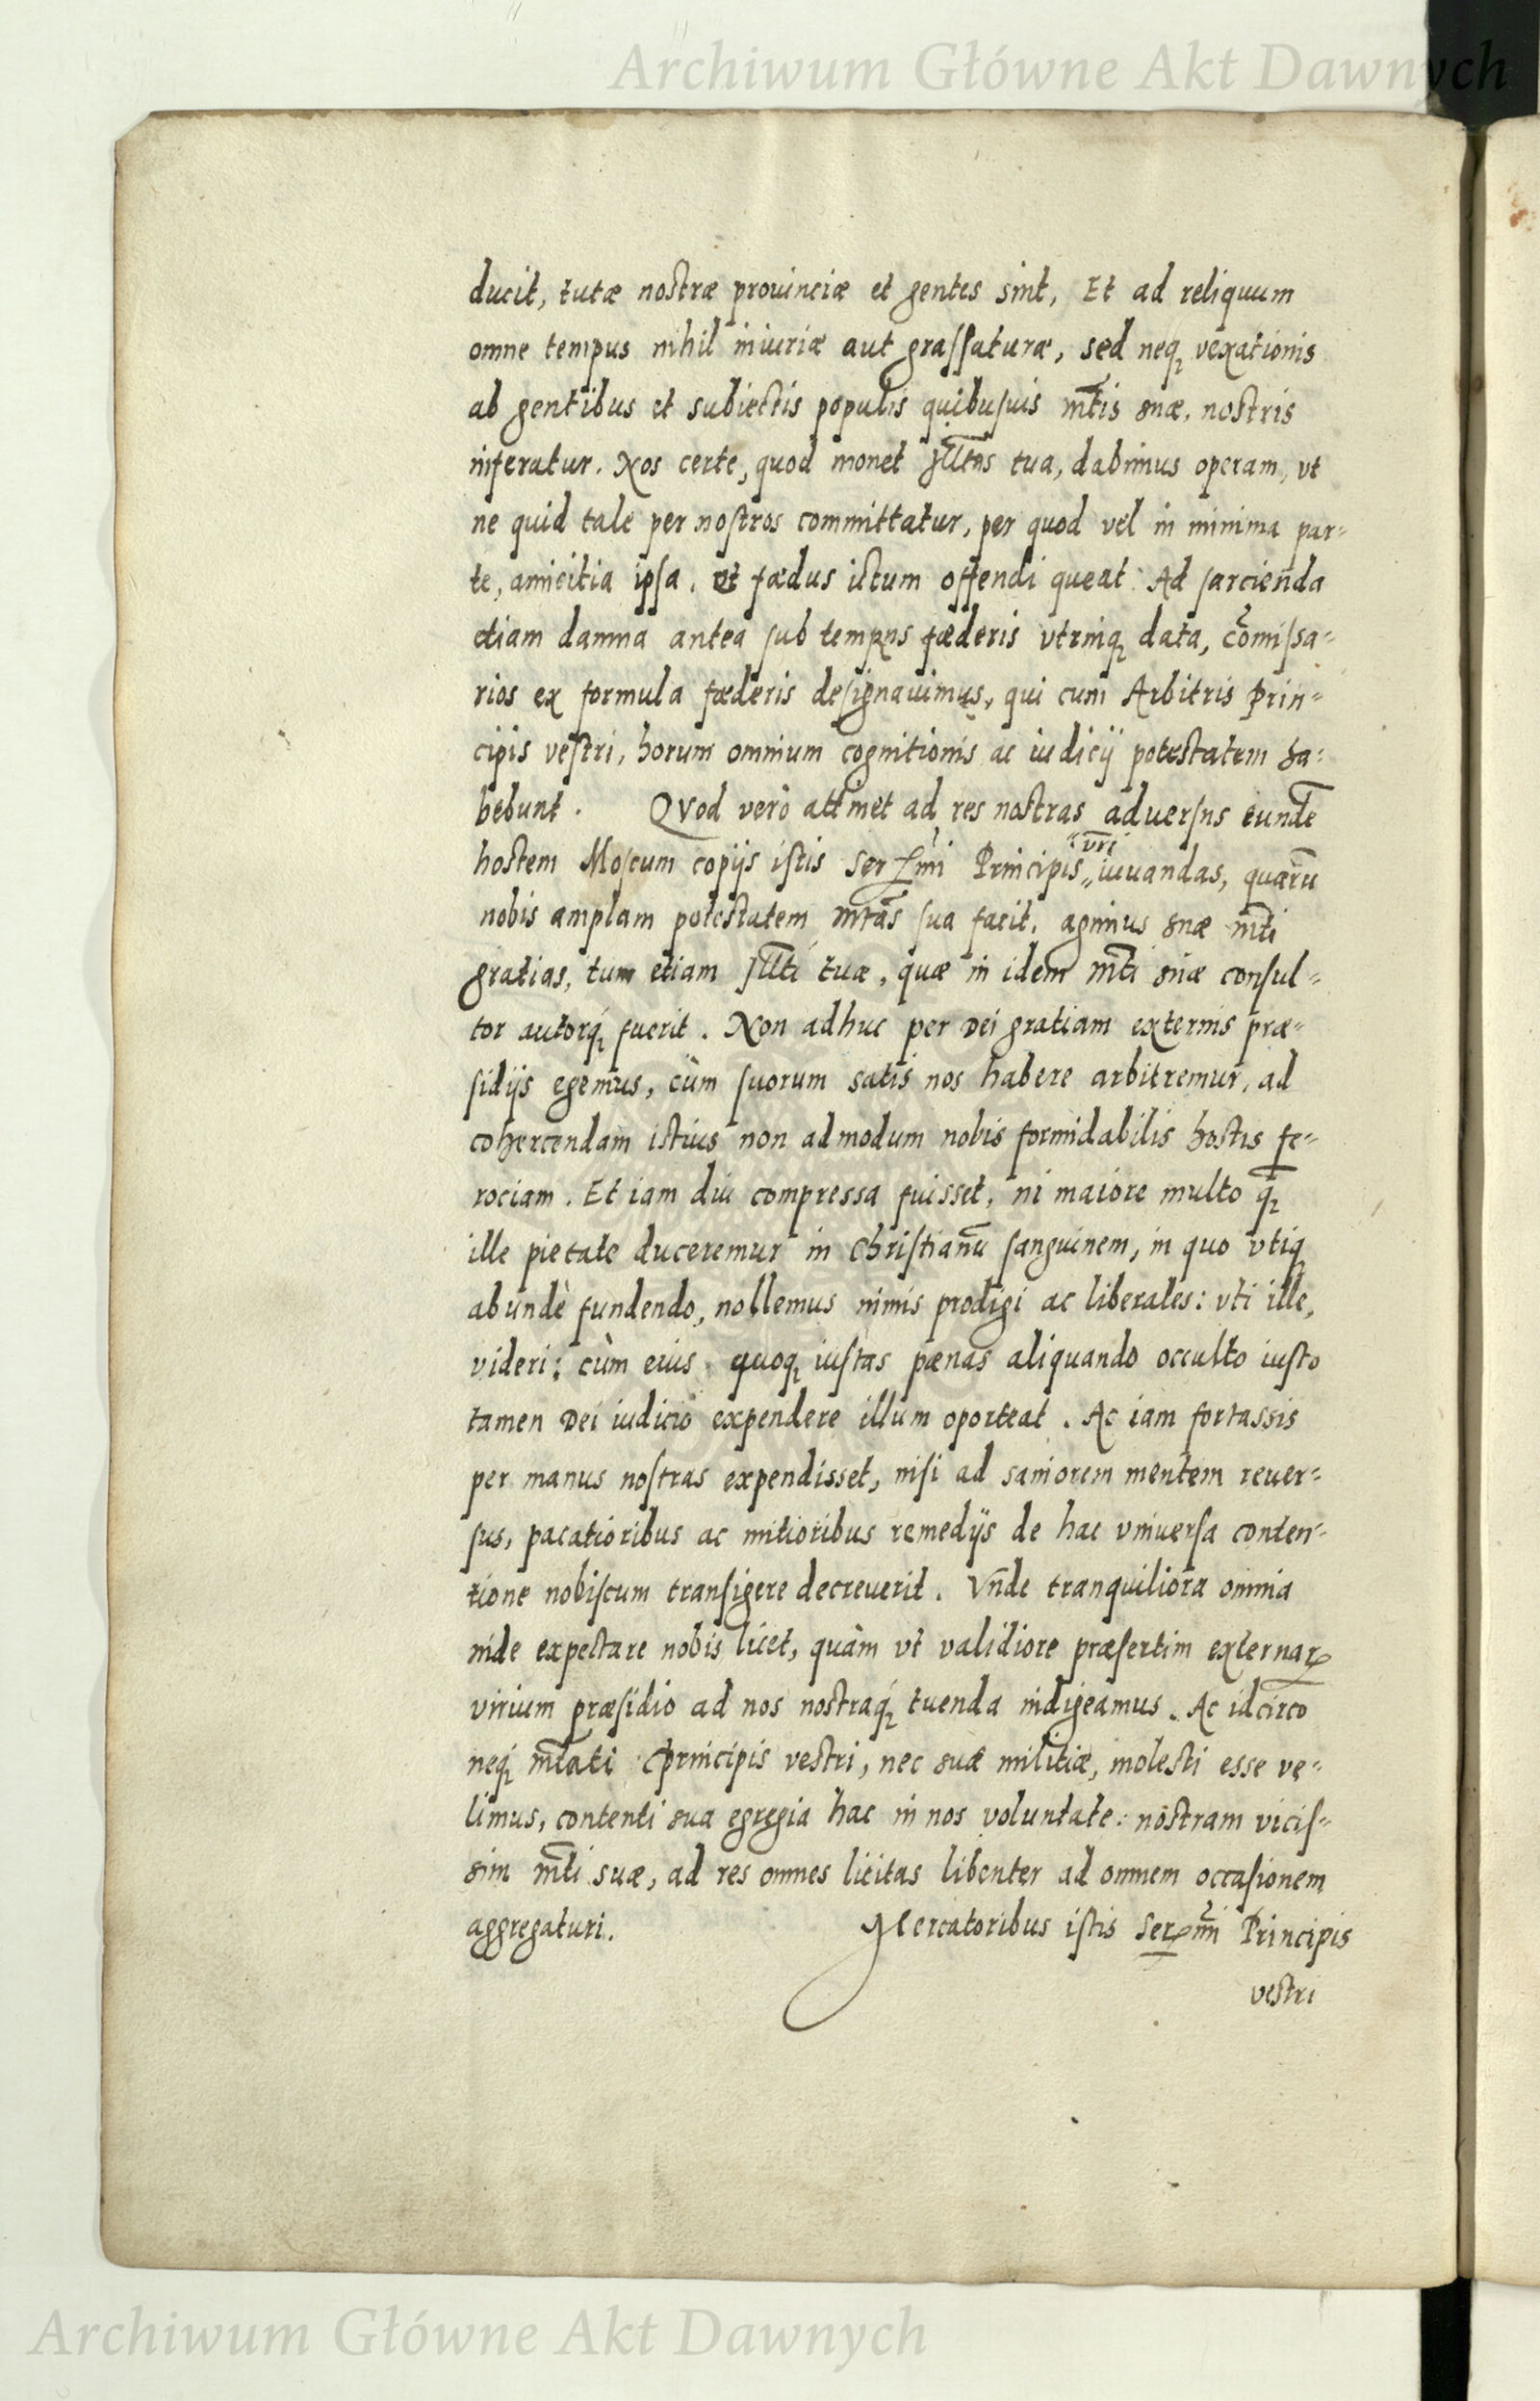 Archiwum Główne Akt Dawnych
ducit, tutæ nostræ prouinciæ et gentes sint, Et ad reliquum
omne tempus nihil iniuriæ aut graſſaturæ, sed neq; vexationis
ab gentibus et subiectis populis quibuſuis mt̃is suæ, nostris
inferatur. Nos certe, quod monet Jll̃tas tua, dabimus operam, vt
ne quid tale per noſtros committatur, per quod vel in minima par-
te, amicitia ipſa, et fædus ictum offendi queat. Ad ſarcienda
etiam damna antea ſub tempus fæderis vtrinq; data, com̃iſsa-
rios ex formula fæderis deſignauimus, qui cum Arbitris Prin-
cipis veſtri, horum omnium cognitionis ac iudicij potestatem ha-
bebunt. QVod verò attinet ad res nostras aduerſus eundẽ
hostem Moſcum copijs iſtis Serſm̃i Principis vr̃i iuuandas, quarũ
nobis amplam potestatem mt̃as ſua facit, agimus suæ mt̃i
gratias, tum etiam Jll̃ti tuæ, quæ in idem mt̃i suæ conſul-
tor autorq́; fuerit. Non adhuc per Dei gratiam externis præ-
ſidijs egemus, cùm ſuorum satis nos habere arbitremur, ad
cohercendam istius non admodum nobis formidabilis hostis fe-
rociam. Et iam diu compressa fuisset, ni maiore multo q̃;
ille pietate duceremur in Chriſtianũ ſanguinem, in quo vtiq;
abundè fundendo, nollemus nimis prodigi ac liberales: vti ille,
videri: cùm eius quoq; iuſtas pænas aliquando occulto iuſto
tamen Dei iudicio expendere illum oporteat. Ac iam fortassis
per manus noſtras expendisset, niſi ad saniorem mentem reuer-
ſus, pacatioribus ac mitioribus remedijs de hac vniuerſa conten-
tione nobiſcum tranſigere decreuerit. Vnde tranquiliora omnia
inde expectare nobis licet, quàm vt validiore præſertim externaꝝ
virium præſidio ad nos nostraq́; tuenda indigeamus. Ac idcirco
neq; mt̃ati Principis vestri, nec suæ militiæ, molesti esse ve-
limus, contenti sua egregia hac in nos voluntate: nostram viciſ-
sim mt̃i suæ, ad res omnes licitas libenter ad omnem occaſionem
aggregaturi. Mercatoribus iſtis Serm̃i Principis
vestri
Archiwum Główne Akt Dawnych